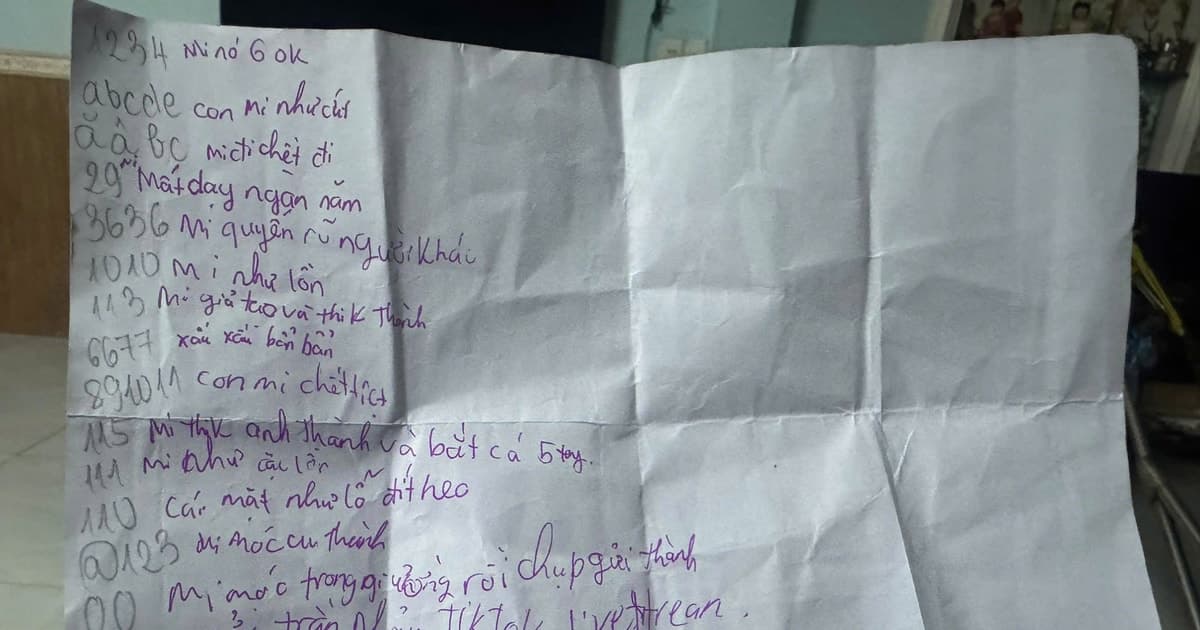 1234 Mi nó 6 ok
abcde con mi như cứt
ă â, b c mi đi chết đi
29 Mất dạy ngàn năm
3636 Mi quyến rũ người khác
1010 Mi như lồn
113 Mi giả tạo và thik Thành
6677 xấu xấu bẩn bẩn
891011 con mi chết tiệt
115 Mi thik anh thành và bắt cá 5 tay.
111 Mi như cái lồn
110 Cái mặt như lỗ đít heo
@123 Mi móc cu thành
00 Mi móc trong giường rồi chụp gửi thành
trần TikTok livestrean.